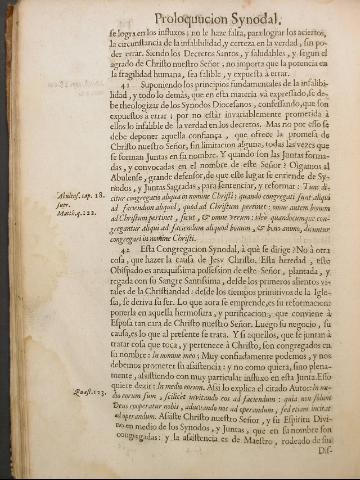 Proloquucion Synodal.
se logra en los influxos; no le haze falta, para lograr los aciertos,
la circunstancia de la infalibilidad, y certeza en la verdad, sin po-
der errar. Siendo los Decretos Santos, y saludables, y segun el
agrado de Christo nuestro Señor; no importa que la potencia en
la fragilidad humana, sea falible, y expuesta à errar.
41 Suponiendo los principios fundamentales de la infalibi-
lidad, y todo lo demàs, que en esta materia và expressado, se de-
be theologizar de los Synodos Diocesanos, confessando, que son
expuestos à errar; por no estàr invariablemente prometida à
ellos lo infalible de la verdad en los decretos. Mas no por esso se
debe deponer aquella confiança, que ofrece la promesa de
Christo nuestro Señor, sin limitacion alguna, todas las vezes que
se forman Juntas en su nombre. Y quando son las Juntas forma-
das, y convocadas en el nombre de este Señor? Oigamos al
Abulense, grande defensor, de que este lugar se entiende de Sy-
nodos, y Juntas Sagradas, para sentenciar, y reformar: Tunc di-
Abulens. cap. 18.
super.
Matth. q. 122.
citur congregatio aliqua in nomine Christi: quando congregati sunt aliqui
ad faciendum aliquid, quod ad Christum pertinet: omne autem bonum
ad Christum pertinet, sicut, & omne verum: ideò quandocumque con-
gregantur aliqui ad faciendum aliquod bonum, & bono animo, dicuntur
congregari in nomine Christi.
42 Esta Congregacion Synodal, à què se dirige? No à otra
cosa, que hazer la causa de Jesv Christo. Esta heredad, este
Obispado es antiquissima possession de este Señor, plantada, y
regada con su Sangre Santissima, desde los primeros alientos vi-
tales de la Christiandad: desde los tiempos primitivos de la Igle-
sia, se deriva su ser. Lo que aora se emprende, es su reformacion:
ponerla en aquella hermosura, y purificacion, que conviene à
Esposa tan cara de Christo nuestro Señor. Luego su negocio, su
causa, es lo que al presente se trata. Y si aquellos, que se juntan à
tratar cosa que toca, y pertenece à Christo, son congregados en
su nombre: In nomine meo; Muy confiadamente podemos, y nos
debemos prometer su assistencia: y no como quiera, sino plena-
mente, assistiendo con muy particular influxo en esta Junta. Esso
quiere dezir: In medio eorum. Assi lo explica el citado Autor: In me-
Quaest. 123.
dio eorum sum, scilicet invitando eos ad faciendum: quia non solum
Deus cooperatur nobis, adiuvando nos ad operandum, sed etiam incitat
ad operandum. Assiste Christo nuestro Señor, y su Espiritu Divi-
no en medio de los Synodos, y Juntas, que en su nombre son
congregadas: y la assistencia es de Maestro, rodeado de sus
Dis-